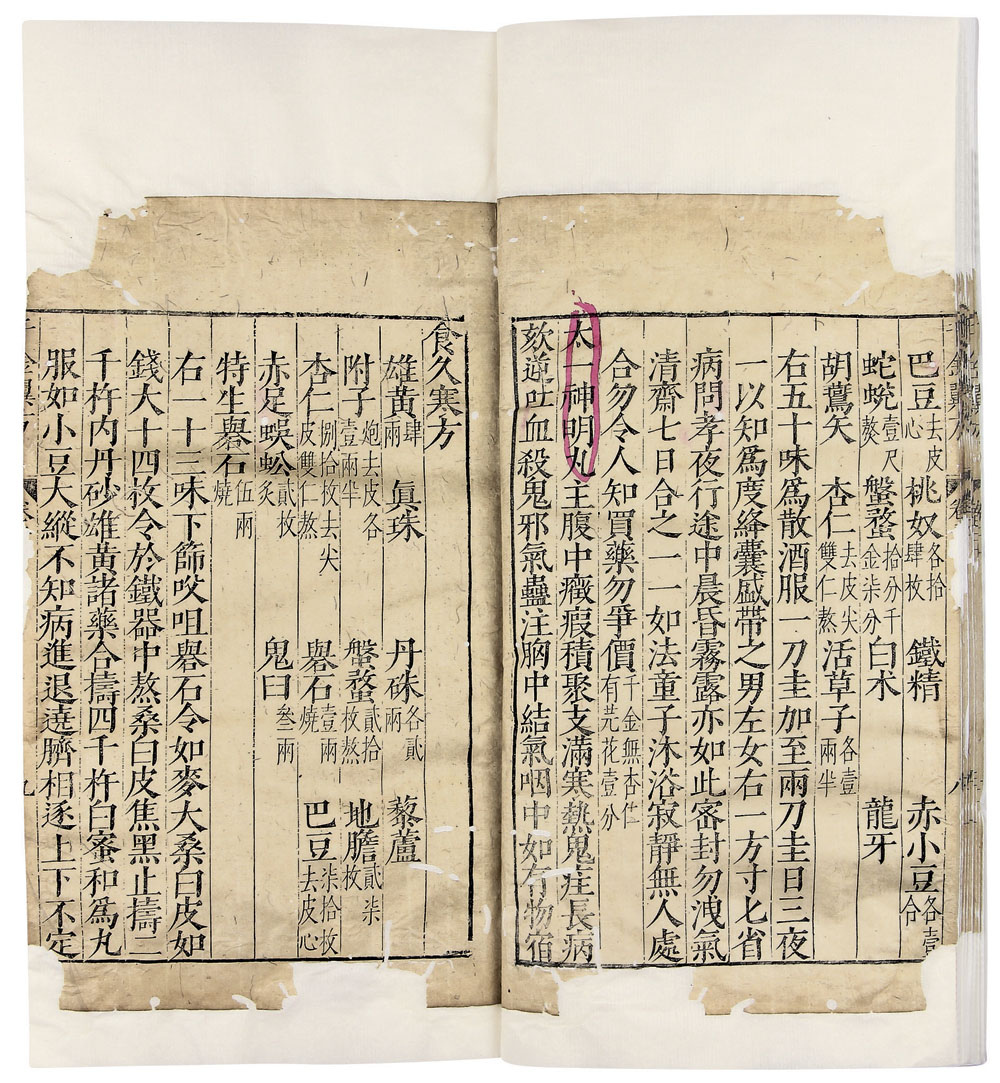 巴豆去皮心 桃奴各拾肆枚 鐵精 赤小豆各壹合
蛇蛻壹尺熬 螌蝥拾分千金柒分 白朮 龍牙
胡鷰矢 杏仁去皮尖雙仁熬 活草子各壹兩半
右五十味爲散酒服一刀圭加至兩刀圭日三夜
一以知爲度絳囊盛帶之男左女右一方寸匕省
病問孝夜行途中晨昏霧露亦如此密封勿洩氣
清齋七日合之一一如法童子沐浴寂靜無人處
合勿令人知買藥勿爭價千金無杏仁有芫花壹分
太一神明丸主腹中癥瘕積聚支滿寒熱鬼疰長病
欬逆吐血殺鬼邪氣蠱注胸中結氣咽中如有物宿
食久寒方
雄黃肆兩 眞珠 丹硃各貳兩 藜蘆
附子炮去皮各壹兩半 螌蝥貳拾枚熬 地膽貳柒枚
杏仁捌拾枚去尖皮雙仁熬 礜石壹兩燒 巴豆柒拾枚去皮心
赤足蜈蚣貳枚炙 鬼臼叁兩
特生礜石伍兩燒
右一十三味下篩㕮咀礜石令如麥大桑白皮如
錢大十四枚令於鐵器中熬桑白皮焦黑止擣二
千杵內丹砂雄黃諸藥合擣四千杵白蜜和爲丸
服如小豆大縱不知病進退遶臍相逐上下不定